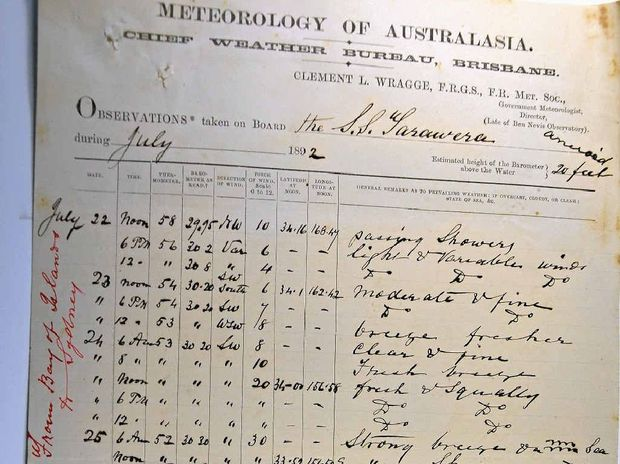 METEOROLOGY OF AUSTRALASIA.
CHIEF WEATHER BUREAU, BRISBANE.
CLEMENT L. WRAGGE, F.R.G.S., F.R. MET. SOC.,
Government Meteorologist,
Director,
(Late of Ben Nevis Observatory).
OBSERVATIONS* taken on Board the S.S. Tarawera
aneroid
during July 1892 Estimated height of the Barometer above the Water } 20 feet
DATE. TIME. THERMOMETER. BAROMETER AS READ.† DIRECTION OF WIND. FORCE OF WIND. Scale 0 to 12. LATITUDE AT NOON. LONGITUDE AT NOON. (GENERAL REMARKS AS TO PREVAILING WEATHER; IF OVERCAST, CLOUDY, OR CLEAR; STATE OF SEA, &c.
From Bay of Islands to Sydney
July 22 Noon 58 29.95 NW 10 34.16 168.47 passing Showers
6 PM 56 30.2 Var 6 – – light & Variables winds
12 " 30.8 " 4 – – Do Do Do
23 noon 54 30.20 SW South 6 34.1 162.42 moderate & fine
" 6 PM 54 30.20 SW 7 – – Do Do
" 12 " 53 " WSW 8 – – breeze fresher
24 6 Am 53 30.20 SW 8 – – Clear & fine
" 8 " " " " 10 Fresh breeze
" Noon " " " 20 34-00 156.58 fresh & Squally
" 6 PM " " " " Do Do
" 12 " " " " " Do Do
25 6 Am 52 30.20 " 30 – – Strong breeze Sea
Noon " " " " 33.59